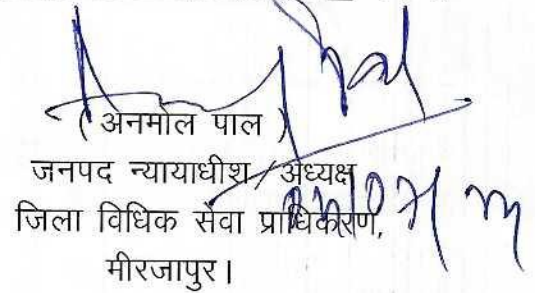 ( अनमोल पाल )
जनपद न्यायाधीश / अध्यक्ष
जिला विधिक सेवा प्राधिकरण,
मीरजापुर।